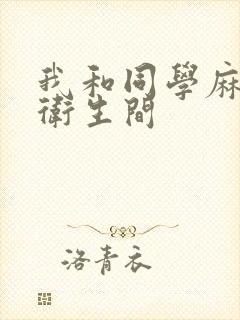 我和同學麻
衛生間
洛青衣